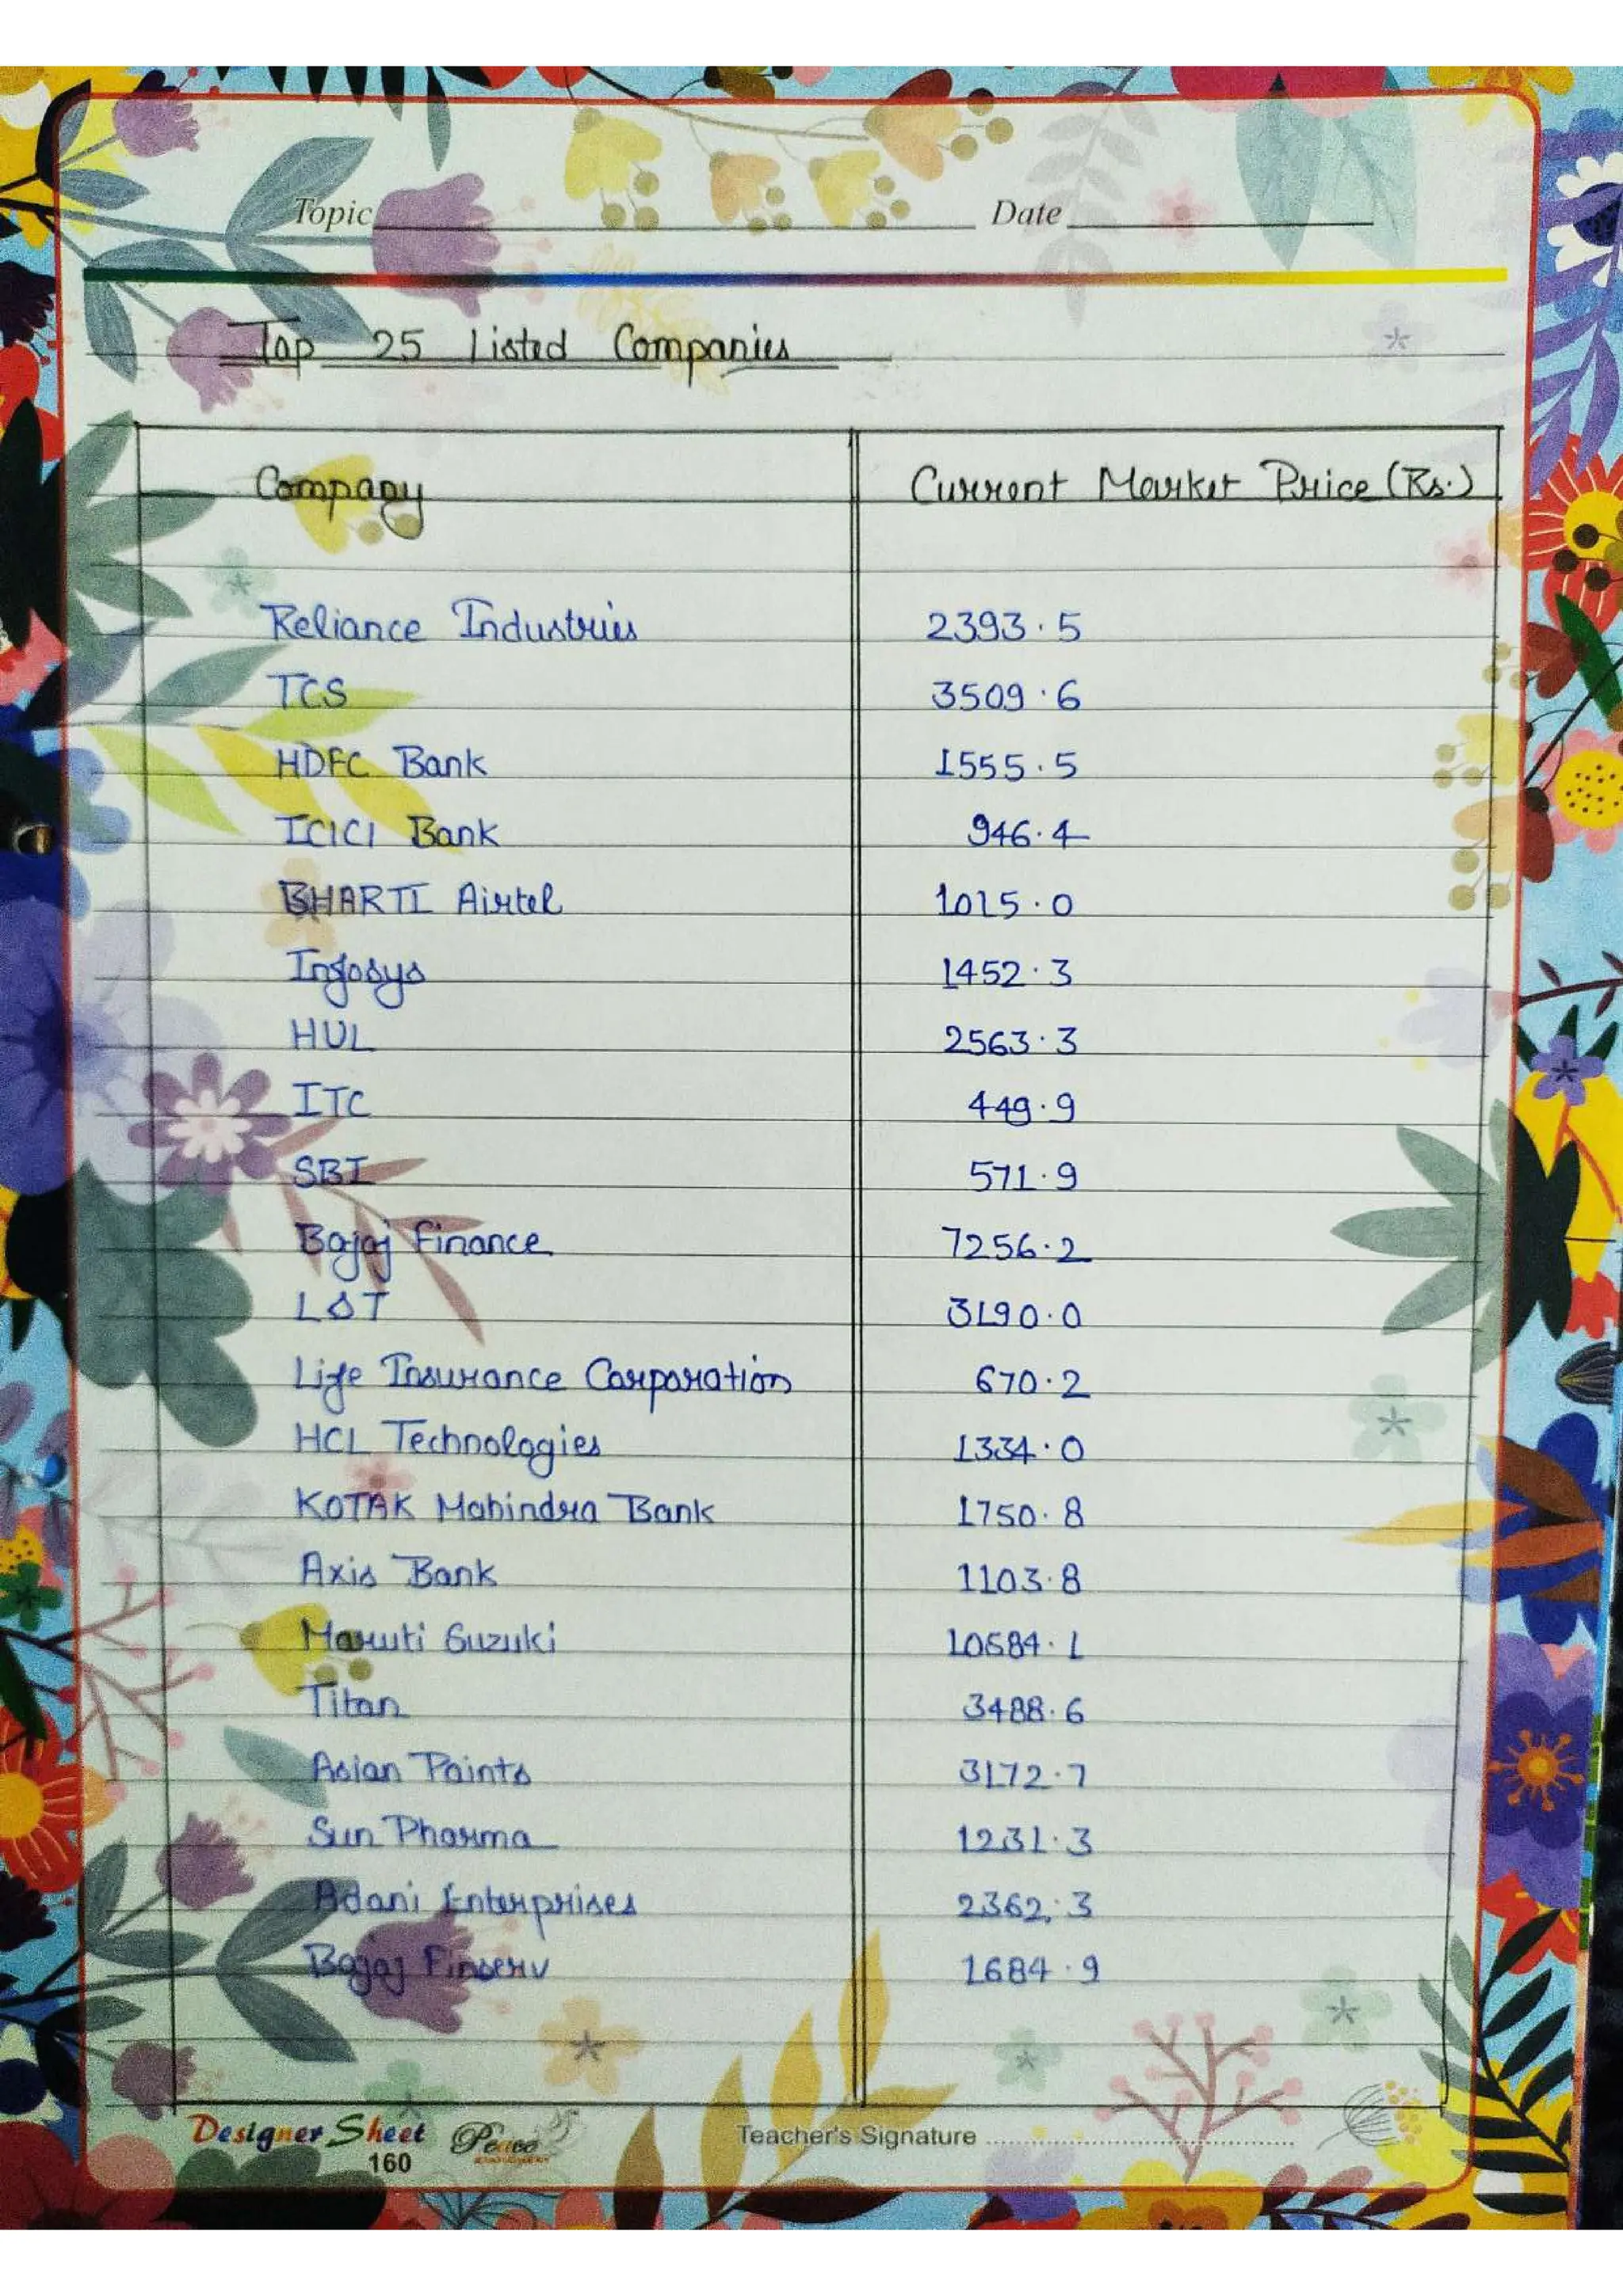 Topic Date
Top 25 Listed Companies
Company Current Market Price (Rs.)
Reliance Industries 2393.5
TCS 3509.6
HDFC Bank 1555.5
ICICI Bank 946.4
BHARTI Airtel 1015.0
Infosys 1452.3
HUL 2563.3
ITC 449.9
SBI 571.9
Bajaj Finance 7256.2
L&T 3190.0
Life Insurance Corporation 670.2
HCL Technologies 1334.0
KOTAK Mahindra Bank 1750.8
Axis Bank 1103.8
Maruti Suzuki 10684.1
Titan 3488.6
Asian Paints 3172.7
Sun Pharma 1231.3
Adani Enterprises 2362.3
Bajaj Finserv 1684.9
Designer Sheet Peace Teacher's Signature
160